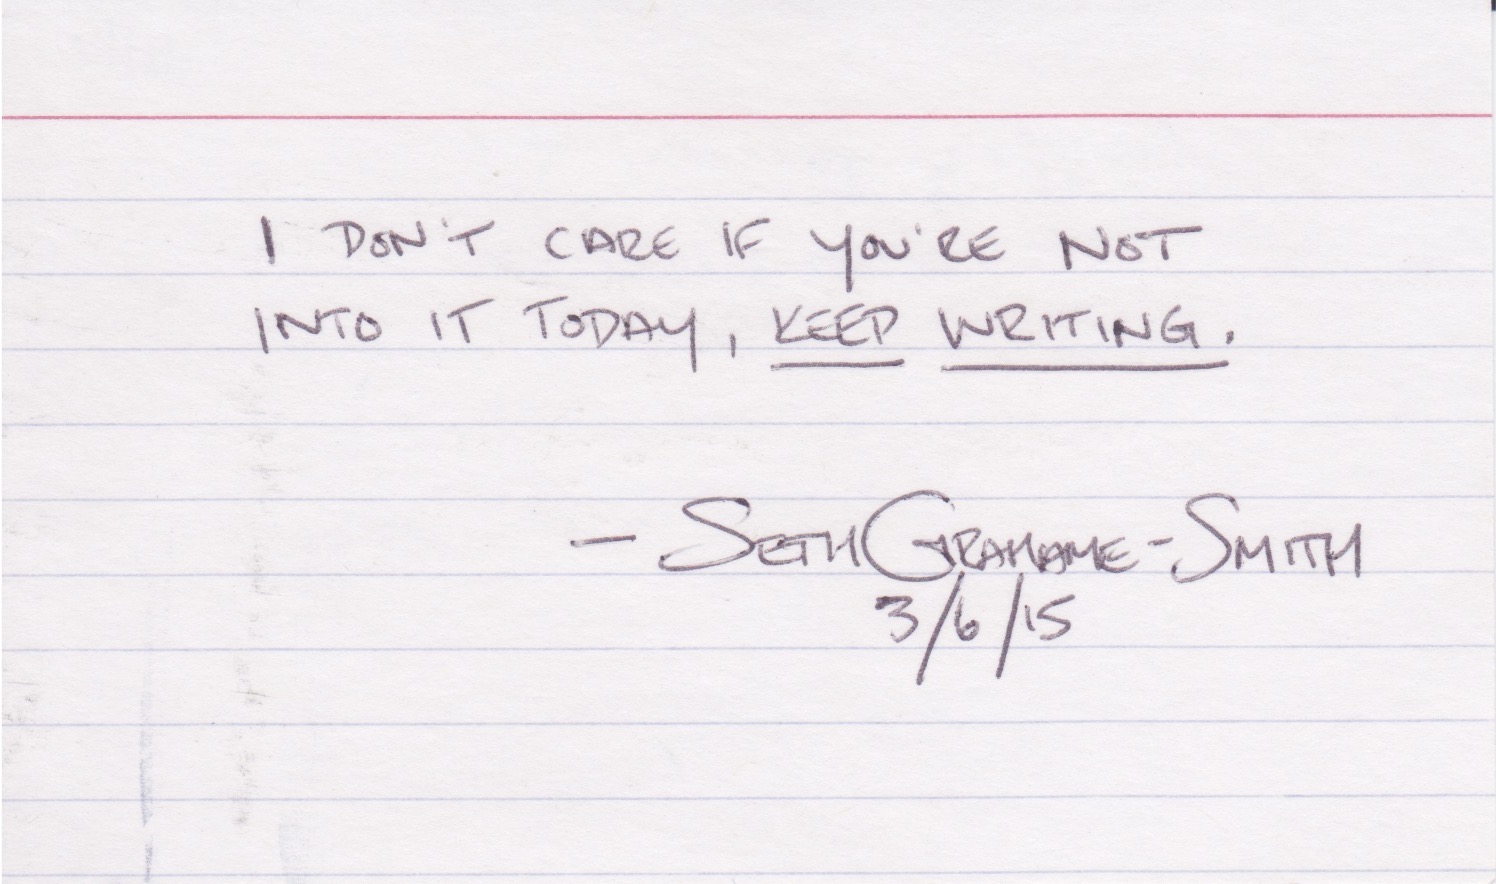 I DON'T CARE IF YOU'RE NOT
INTO IT TODAY, KEEP WRITING.
— SETH GRAHAME-SMITH
3/6/15